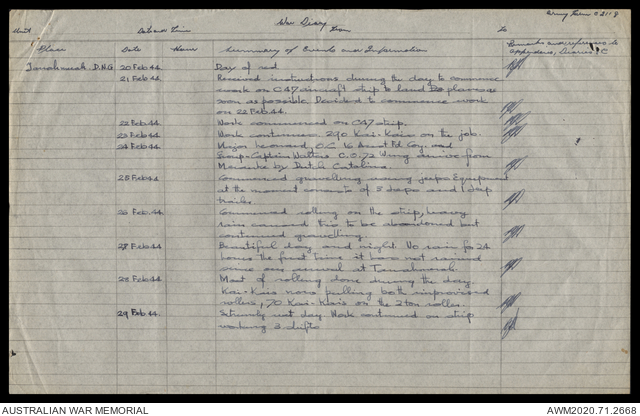 War Diary
Army Form C 2118
Unit Date and Time From To
Place Date Hour Summary of Events and Information Remarks and references to
Appendices, Diaries, C
Tanahmerah D.N.G 20 Feb 44 Day of rest
21 Feb 44 Received instructions during the day to commence
work on C47 aircraft strip to land planes as
soon as possible. Decided to commence work
on 22 Feb 44.
22 Feb 44 Work commenced on C47 strip.
23 Feb 44 Work continues. 290 Kai-Kais on the job.
24 Feb 44 Major Leonard, O.C. 16 Coy. and
Group-Captain Walters C.O. 72 Wing arrive from
Merauke by Dutch Catalina.
25 Feb 44 Commenced gravelling using jeeps. Equipment
at the moment consists of 3 jeeps and 1 jeep
trailer.
26 Feb 44 Commenced rolling on the strip, heavy
rains caused this to be abandoned but
continued gravelling.
27 Feb 44 Beautiful day and night. No rain for 24
hours the first time it has not rained
since our arrival at Tanahmerah.
28 Feb 44 Most of rolling done during the day.
Kai-Kais now pulling both improvised
rollers, 70 Kai-Kais on the 2 ton roller.
29 Feb 44 Extremely wet day. Work continued on strip
working 3 shifts
AUSTRALIAN WAR MEMORIAL
AWM2020.71.2668